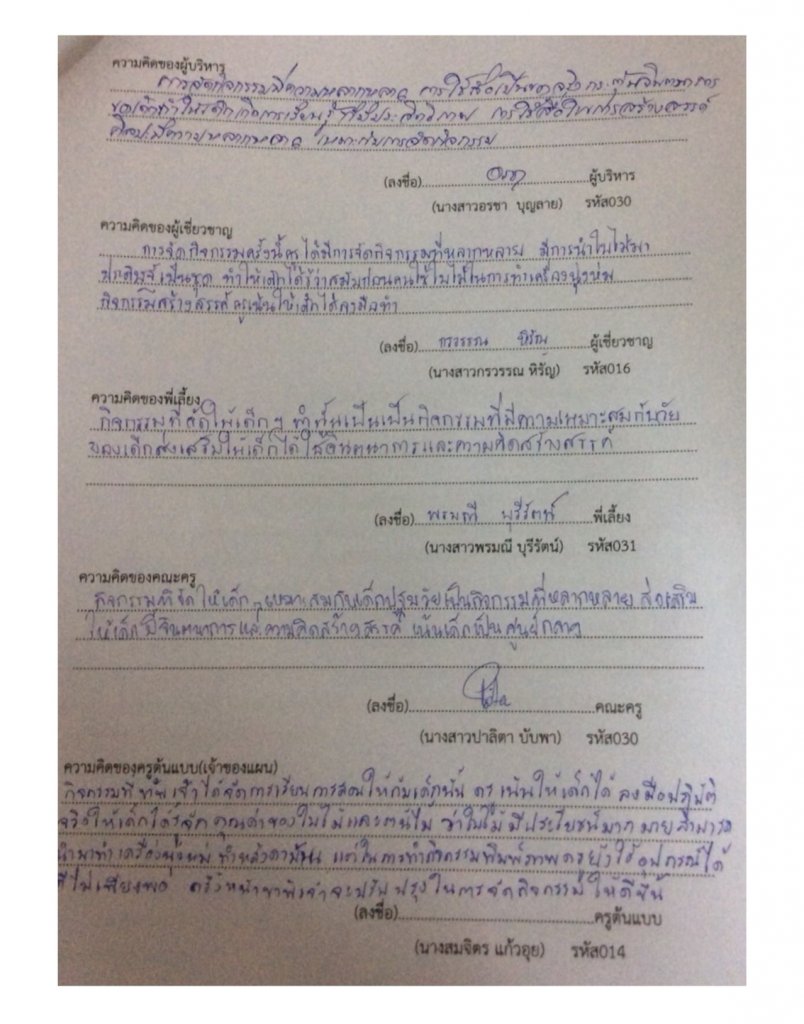 ความคิดของผู้บริหาร
การจัดกิจกรรมมีความหลากหลาย การใช้สื่อเป็นของจริง กระตุ้นจินตนาการ
ของเด็กทำให้เด็กเกิดการเรียนรู้ที่มีประสิทธิภาพ การใช้สื่อในการสร้างสรรค์
ศิลปะมีความหลากหลาย เหมาะกับการจัดกิจกรรม
(ลงชื่อ) อรชา ผู้บริหาร
(นางสาวอรชา บุญลาย) รหัส030
ความคิดของผู้เชี่ยวชาญ
การจัดกิจกรรมครั้งนี้ครูได้มีการจัดกิจกรรมที่หลากหลาย มีการนำใบไม้มา
ประดิษฐ์เป็นชุด ทำให้เด็กได้รู้ว่าสมัยก่อนคนใช้ใบไม้ในการทำเครื่องนุ่งห่ม
กิจกรรมสร้างสรรค์ครูเน้นให้เด็กได้ลงมือทำ
(ลงชื่อ) กรวรรณ หิรัญ ผู้เชี่ยวชาญ
(นางสาวกรวรรณ หิรัญ) รหัส016
ความคิดของพี่เลี้ยง
กิจกรรมที่จัดให้เด็กๆ ทำนั้นเป็นเป็นกิจกรรมที่มีความเหมาะสมกับวัย
ของเด็กส่งเสริมให้เด็กได้ใช้จินตนาการและความคิดสร้างสรรค์
(ลงชื่อ) พรมณี บุรีรัตน์ พี่เลี้ยง
(นางสาวพรมณี บุรีรัตน์) รหัส031
ความคิดของคณะครู
กิจกรรมที่จัดให้เด็กๆ เหมาะสมกับเด็กปฐมวัยเป็นกิจกรรมที่หลากหลาย ส่งเสริม
ให้เด็กมีจินตนาการและความคิดสร้างสรรค์ เน้นเด็กเป็นศูนย์กลาง
(ลงชื่อ) คณะครู
(นางสาวปาลิตา บับพา) รหัส030
ความคิดของครูต้นแบบ(เจ้าของแผน)
กิจกรรมที่ข้าพเจ้าได้จัดการเรียนการสอนให้กับเด็กนั้น ครูเน้นให้เด็กได้ ลงมือปฏิบัติ
จริงให้เด็กได้รู้จัก คุณค่าของใบไม้และต้นไม้ ว่าใบไม้ มีประโยชน์มากมายสามารถ
นำมาทำเครื่องนุ่งห่ม ทำหลังคาบ้าน แต่ในการทำกิจกรรมพิมพ์ภาพครูยังใช้อุปกรณ์ได้
ที่ไม่เพียงพอ ครั้งหน้าข้าพเจ้าจะปรับปรุงในการจัดกิจกรรมให้ดีขึ้น
(ลงชื่อ) ครูต้นแบบ
(นางสมจิตร แก้วอุย) รหัส014